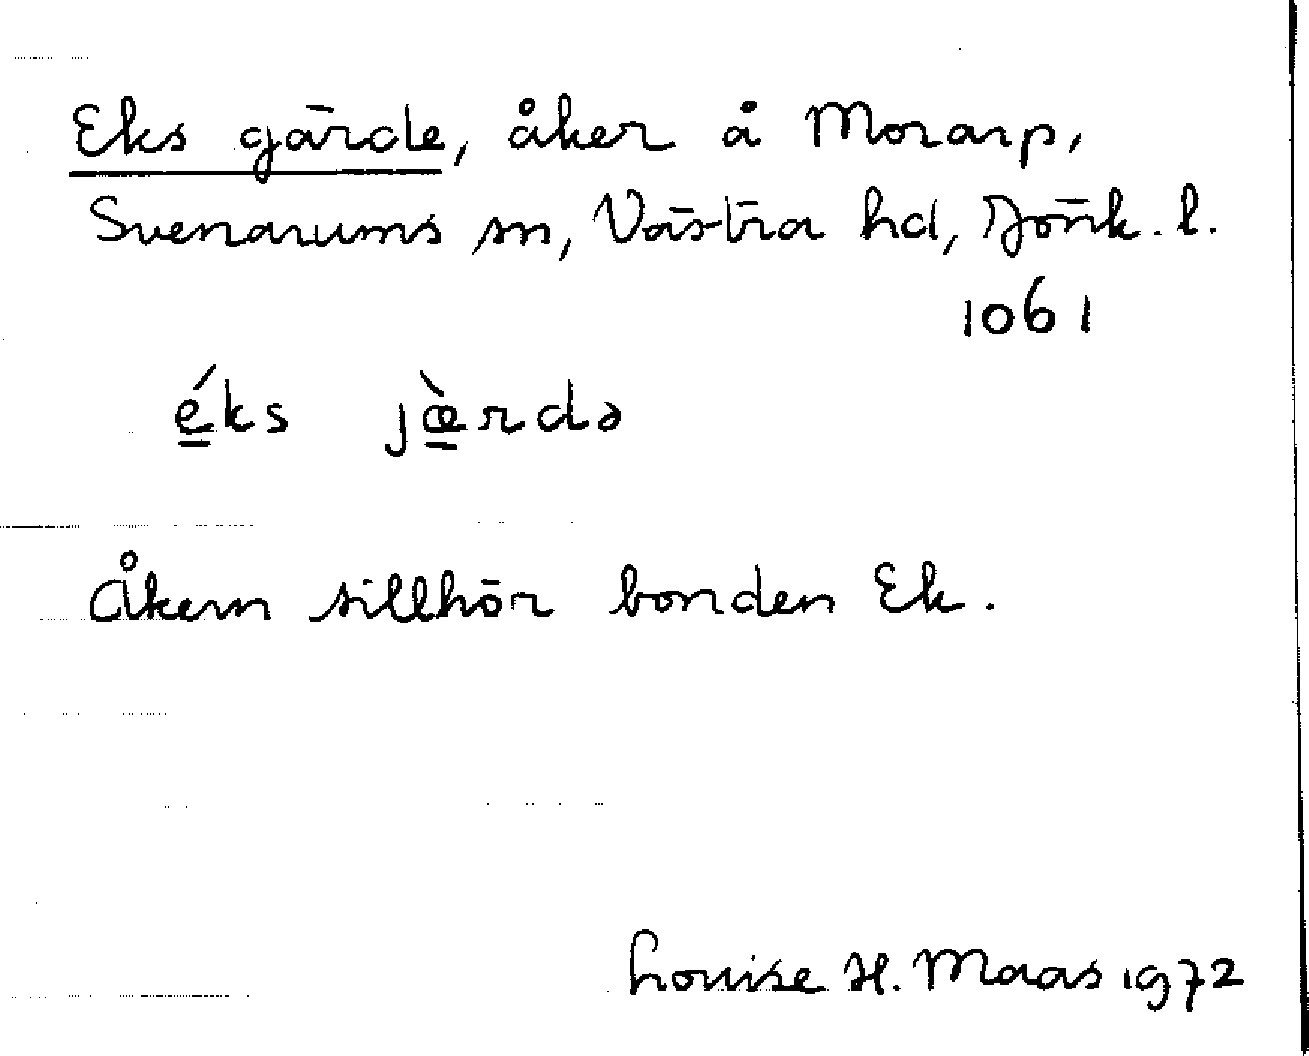 Eks gärde, åker å Morarp,
Svenarums sn, Västra hd, Jönk. l.
1061
é̲ks jæ̲̀rdə
Åkern tillhör bonden Ek.
Louise H. Maas 1972